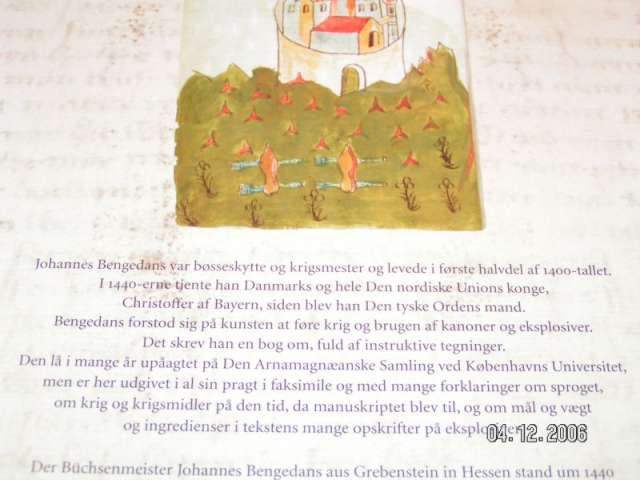 Johannes Bengedans var bøsseskytte og krigsmester og levede i første halvdel af 1400-tallet.
I 1440-erne tjente han Danmarks og hele Den nordiske Unions konge,
Christoffer af Bayern, siden blev han Den tyske Ordens mand.
Bengedans forstod sig på kunsten at føre krig og brugen af kanoner og eksplosiver.
Det skrev han en bog om, fuld af instruktive tegninger.
Den lå i mange år upåagtet på Den Arnamagnæanske Samling ved Københavns Universitet,
men er her udgivet i al sin pragt i faksimile og med mange forklaringer om sproget,
om krig og krigsmidler på den tid, da manuskriptet blev til, og om mål og vægt
og ingredienser i tekstens mange opskrifter på
04.12.2006
Der Büchsenmeister Johannes Bengedans aus Grebenstein in Hessen stand um 1440